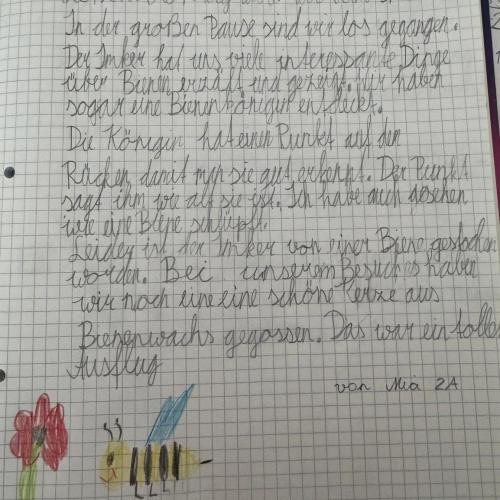 In der großen Pause sind wir los gegangen.
Der Imker hat uns viele interessante Dinge
über Bienen erzält und gezeigt. Wir haben
sogar eine Bienenkönigin entdeckt.
Die Königin hat einen Punkt auf den
Rücken, damit man sie gut erkennt. Der Punkt
sagt ihm wie alt sie ist. Ich habe auch gesehen
wie eine Biene schlüpft.
Leider ist der Imker von einer Biene gestochen
worden. Bei unserem Besuch haben
wir noch eine eine schöne Kerze aus
Bienenwachs gegossen. Das war ein toller
Ausflug
von Mia 2A